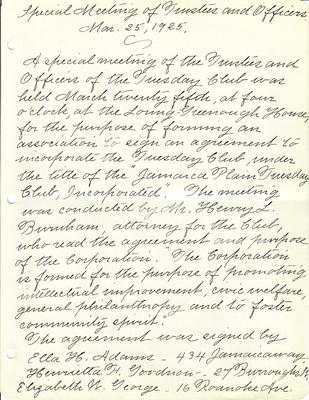 Special Meeting of Trustees and Officers
Mar. 25, 1925.
A special meeting of the Trustees and
Officers of the Tuesday Club was
held March twenty fifth, at four
o'clock, at the Loring-Greenough House,
for the purpose of forming an
association to sign an agreement to
incorporate the Tuesday Club, under
the title of the "Jamaica Plain Tuesday
Club, Incorporated". The meeting
was conducted by Mr. Henry L.
Burnham, attorney for the Club,
who read the agreement and purpose
of the Corporation. "The Corporation
is formed for the purpose of promoting
intellectual improvement, civic welfare,
general philanthropy and to foster
community spirit."
The agreement was signed by
Ella H. Adams - 434 Jamaicaway
Henrietta F. Goodnow - 27 Burroughs St
Elizabeth W. George - 16 Roanoke Ave.